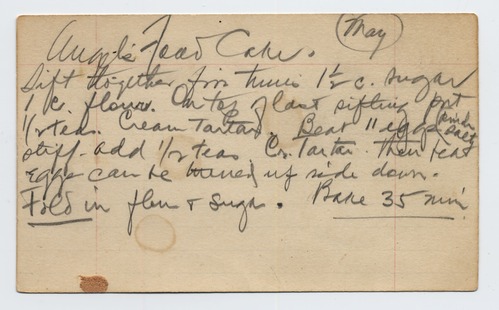 Angel's Food Cake. (May)
Sift together five times 1½ c. sugar
1 c. flour. On top of last sifting put
½ teas. Cream Tartar. Beat 11 eggs pinch salt
stiff. add ½ teas Cr. Tartar. Then beat
eggs can be turned up side down.
Fold in flour + sugar. Bake 35 min